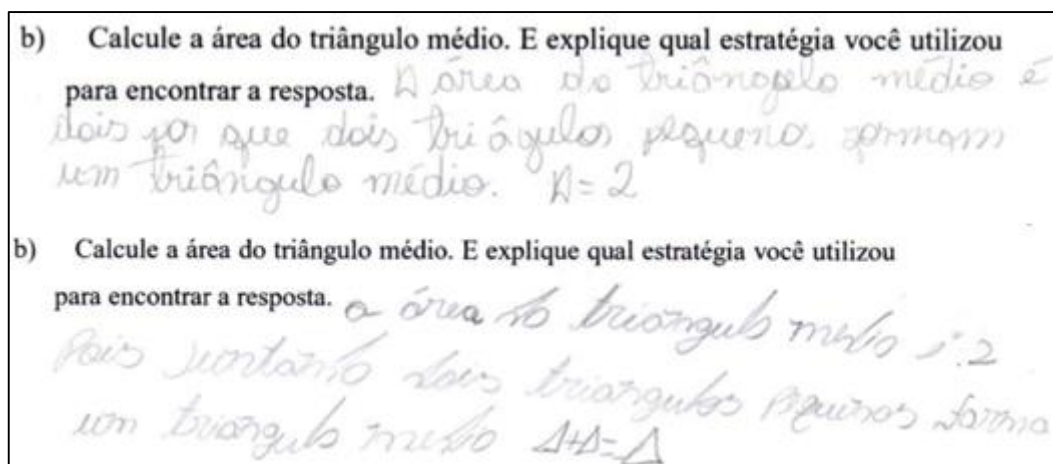 b) Calcule a área do triângulo médio. E explique qual estratégia você utilizou
para encontrar a resposta. A área do triângolo médio é
dois por que dois triâgulos pequeno formam
um triângulo médio. A=2
b) Calcule a área do triângulo médio. E explique qual estratégia você utilizou
para encontrar a resposta. a área do triangulo medio é 2
Pois juntando dois triangulos piquenos forma
um triangulo medio Δ+Δ=Δ